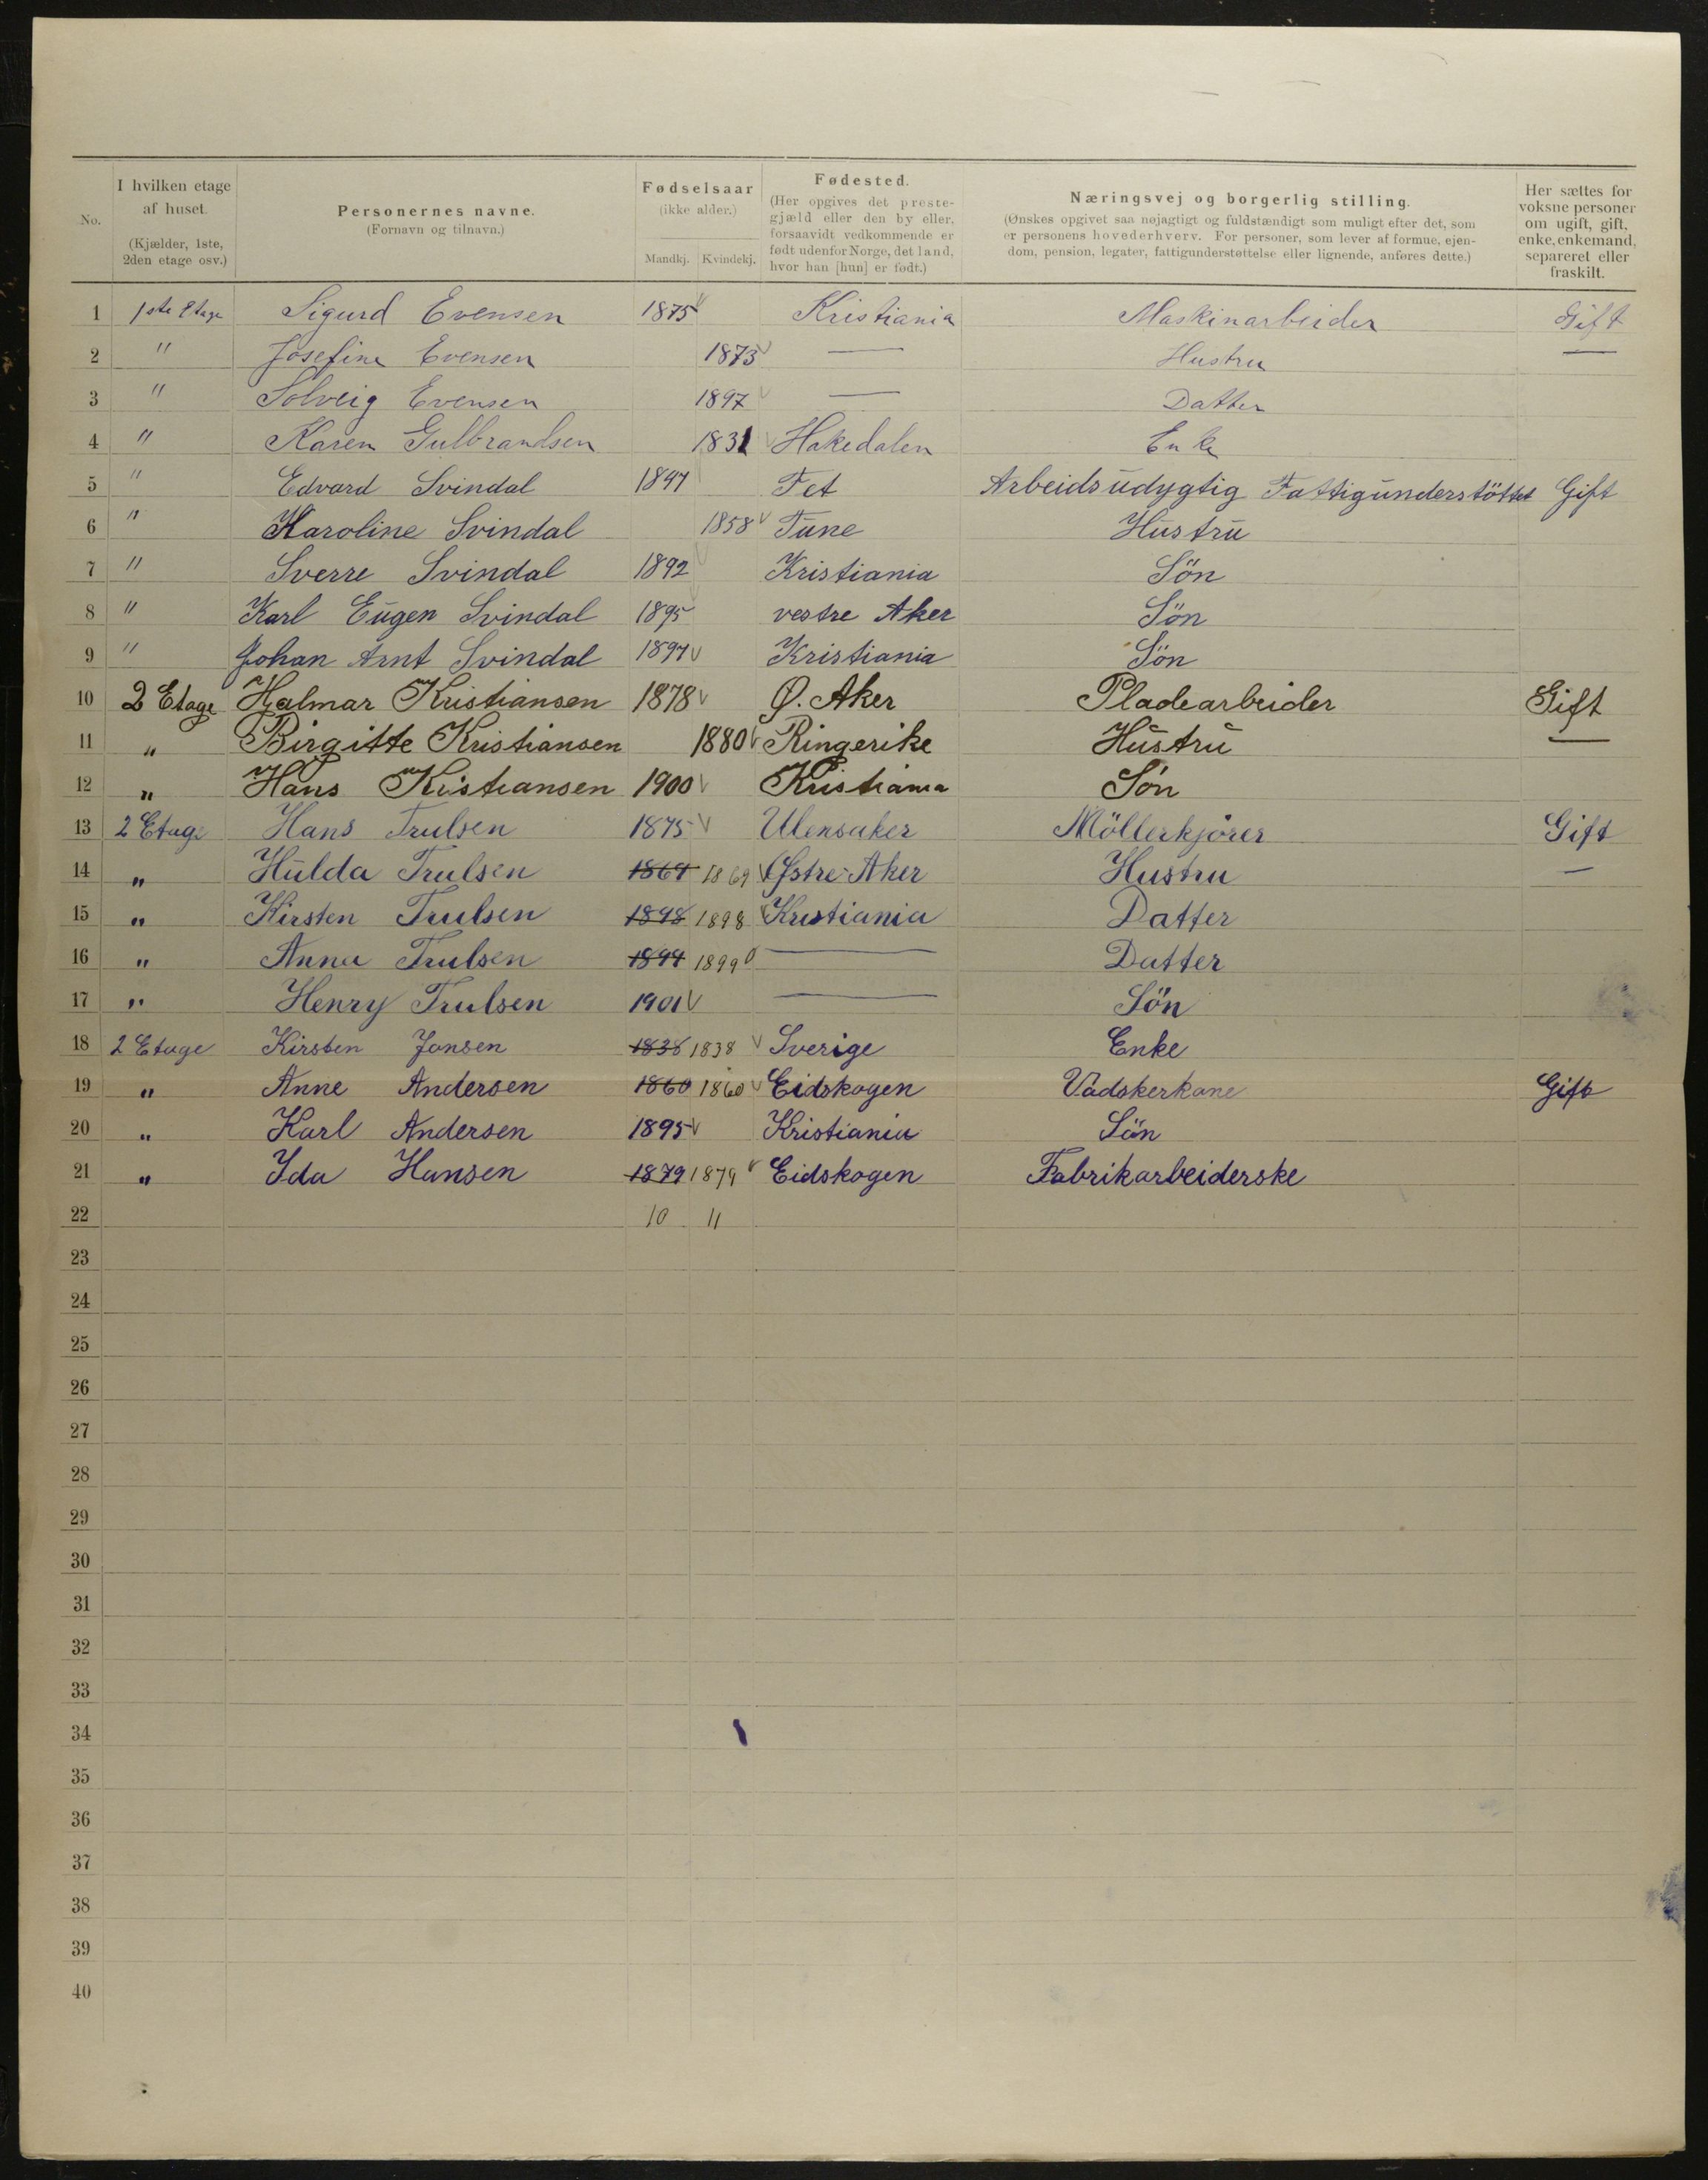 No.
I hvilken etage af huset. (Kjælder, 1ste, 2den etage osv.)
Personernes navne. (Fornavn og tilnavn.)
Fødselsaar (ikke alder.) Mandkj. Kvindekj.
Fødested. (Her opgives det prestegjæld eller den by eller, forsaavidt vedkommende er født udenfor Norge, det land, hvor han [hun] er født.)
Næringsvej og borgerlig stilling. (Ønskes opgivet saa nøjagtigt og fuldstændigt som muligt efter det, som er personens hovederhverv. For personer, som lever af formue, ejendom, pension, legater, fattigunderstøttelse eller lignende, anføres dette.)
Her sættes for voksne personer om ugift, gift, enke, enkemand, separeret eller fraskilt.
1 1ste Etage Sigurd Evensen 1875 Kristiania Maskinarbeider Gift
2 " Josefine Evensen 1873 — Hustru —
3 " Solveig Evensen 1897 — Datter
4 " Karen Gulbrandsen 1831 Hakedalen Enke
5 " Edvard Svindal Fet Arbeidsudygtig Fattigunderstöttet Gift
6 " Karoline Svindal 1858 Tune Hustru
7 " Sverre Svindal 1892 Kristiania Sön
8 " Karl Eugen Svindal 1895 vestre Aker Sön
9 " Johan Arnt Svindal 1897 Kristiania Sön
10 2 Etage Hjalmar Kristiansen 1878 Ø. Aker Pladearbeider Gift
11 " Birgitte Kristiansen 1880 Ringerike Hustru —
12 " Hans Kistiansen 1900 Kristiania Sön
13 2 Etage Hans Trulsen 1875 Ulensaker Möllerkjörer Gift
14 " Hulda Trulsen 1869 1869 Østre Aker Hustru —
15 " Kirsten Trulsen 1898 1898 Kristiania Datter
16 " Anna Trulsen 1899 1899 — Datter
17 " Henry Trulsen 1901 — Sön
18 2 Etage Kirsten Jansen 1838 1838 Sverige Enke
19 " Anne Andersen 1860 1860 Eidskogen Vadskerkone Gift
20 " Karl Andersen 1895 Kristiania Sön
21 " Ida Hansen 1879 1879 Eidskogen Fabrikarbeiderske
22 10 11
23
24
25
26
27
28
29
30
31
32
33
34
35
36
37
38
39
40